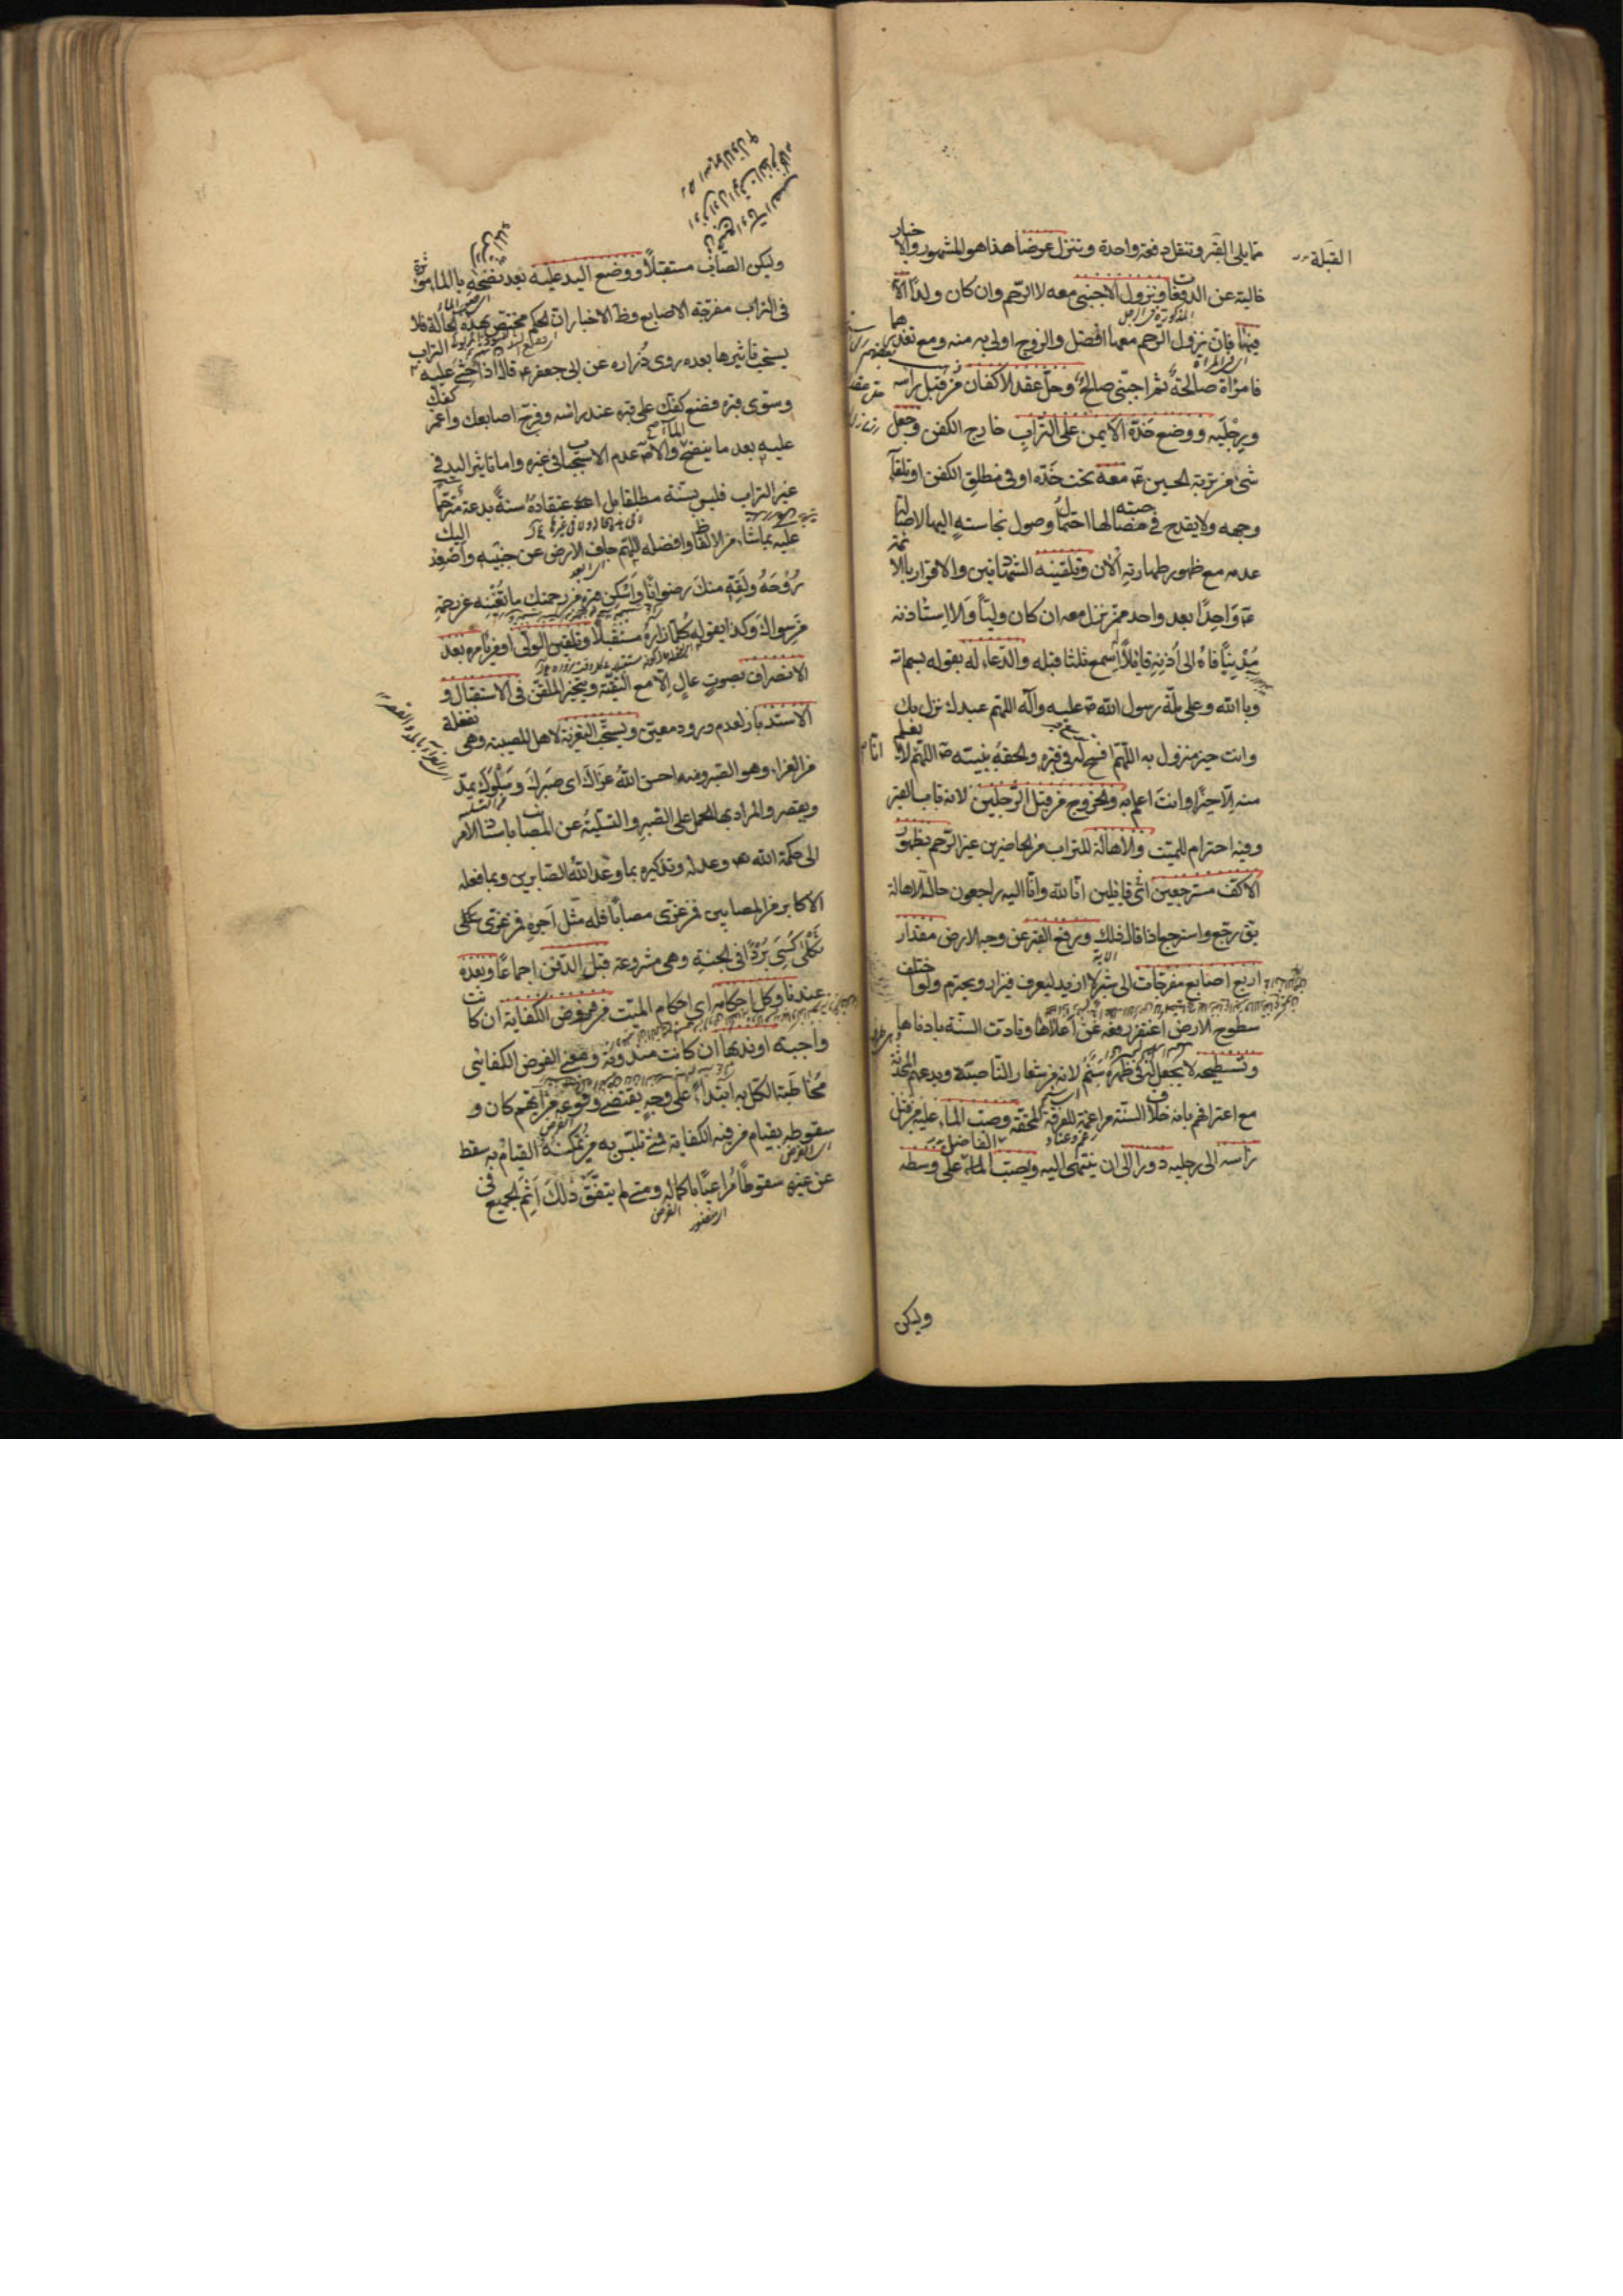 القبلة
مما يلي القبر وتنقل دفعة واحدة وتنزل عرضا هذا هو المشهور والاخبار
خالية عن الدفعات ونزول الاجنبي معه لا الرحم وان كان ولدا الا
فيها فان نزول الرحم معها افضل والزوج اولى به منه ومع تعذرهما
فامراة صالحة ثم اجنبي صالح وحل عقد الاكفان من قبل راسه
ورجليه ووضع خده الايمن على التراب خارج الكفن وجعل
شئ من تربة الحسين ع معه تحت خده او في مطلق الكفن او تلقاء
وجهه ولا يقدح في مصاحبته لها احتمال وصول نجاسته اليها لاصالة
عدمه مع ظهور طهارته الان وتلقينه الشهادتين والاقرار بالائمة
ع واحدا بعد واحد ممن نزل معه ان كان وليا والا استاذنه
مدنيا فاه الى اذنه قائلا اسمع ثلثا قبله والدعاء له بقوله بسم الله
وبالله وعلى ملة رسول الله ص عليه وآله اللهم عبدك نزل بك
وانت خير منزول به اللهم افسح له في قبره والحقه بنبيه ص اللهم انا لا نعلم
منه الا خيرا وانت اعلم به والخروج من قبل الرجلين لانه باب القبر
وفيه احترام للميت والاهالة للتراب من الحاضرين غير الرحم بظهور
الاكف مسترجعين اي قائلين انا لله وانا اليه راجعون حالة الاهالة
يق رجع واسترجع اذا قال ذلك ورفع القبر عن وجه الارض مقدار
اربع اصابع مفرجات الى شبر لا ازيد ليعرف فيزار ويحترم ولو اختلف
سطوح الارض اغتفر رفعه عن اعلاها وتادت السنة بادناها
وتسطيحه لا يجعل له في ظهره سنم لانه من شعار الناصبة وبدعهم المحدثة
مع اعترافهم بانه خلاف السنة مراغمة للفرقة المحقة وصب الماء عليه من قبل
راسه الى رجليه دورا الى ان ينتهي اليه ويصب الفاضل الماء على وسطه
وليكن
وليكن الصاب مستقبلا ووضع اليد عليه بعد نضحه بالماء مؤثرة
في التراب مفرجة الاصابع وظ الاخبار ان الحكم مختص بهذه الحالة فلا
يستحب تاثيرها بعده روى زراره عن ابي جعفر ع قال اذا حثي عليه التراب
وسوى قبره فضع كفك على قبره عند راسه وفرج اصابعك واغمز كفك
عليه بعد ما ينضح بالماء والاصل عدم الاستحباب في غيره واما تاثير اليد في
غير التراب فليس بسنة مطلقا بل اعتقاده سنة بدعة مترحما
عليه بما شاء من الالفاظ وافضله اللهم جاف الارض عن جنبيه واصعد اليك
روحه ولقه منك رضوانا واسكن قبره من رحمتك ما تغنيه عن رحمة
من سواك وكذا يقوله كلما زاره مستقبلا وتلقين الولي او من يامره بعد
الانصراف بصوت عال الا مع التقية ويتخير الملقن في الاستقبال و
الاستدبار لعدم ورود معين ويستحب التعزية لاهل المصيبة وهي تفعلة
من العزاء وهو الصبر ومنه احسن الله عزاك اي صبرك وسلوك يمد
ويقصر والمراد بها الحمل على الصبر والتسلية عن المصاب باسناد الامر
الى حكمة الله تع وعدله وتذكيره بما وعد الله الصابرين وبما فعله
الاكابر من المصابين فمن عزى مصابا فله مثل اجره ومن عزى ثكلى
كسي بردا في الجنة وهي مشروعة قبل الدفن اجماعا وبعده
عندنا وكل احكامه اي احكام الميت من فروض الكفاية ان كانت
واجبة او ندبها ان كانت مندوبة ومعنى الفرض الكفائي
مخاطبة الكل به ابتداء على وجه يقتضي وقوعه من ايهم كان و
سقوطه بقيام من فيه الكفاية فمتى تلبس به من يمكنه القيام به سقط
عن غيره سقوطا مراعيا باكماله ومتى لم يتفق ذلك اثم الجميع في